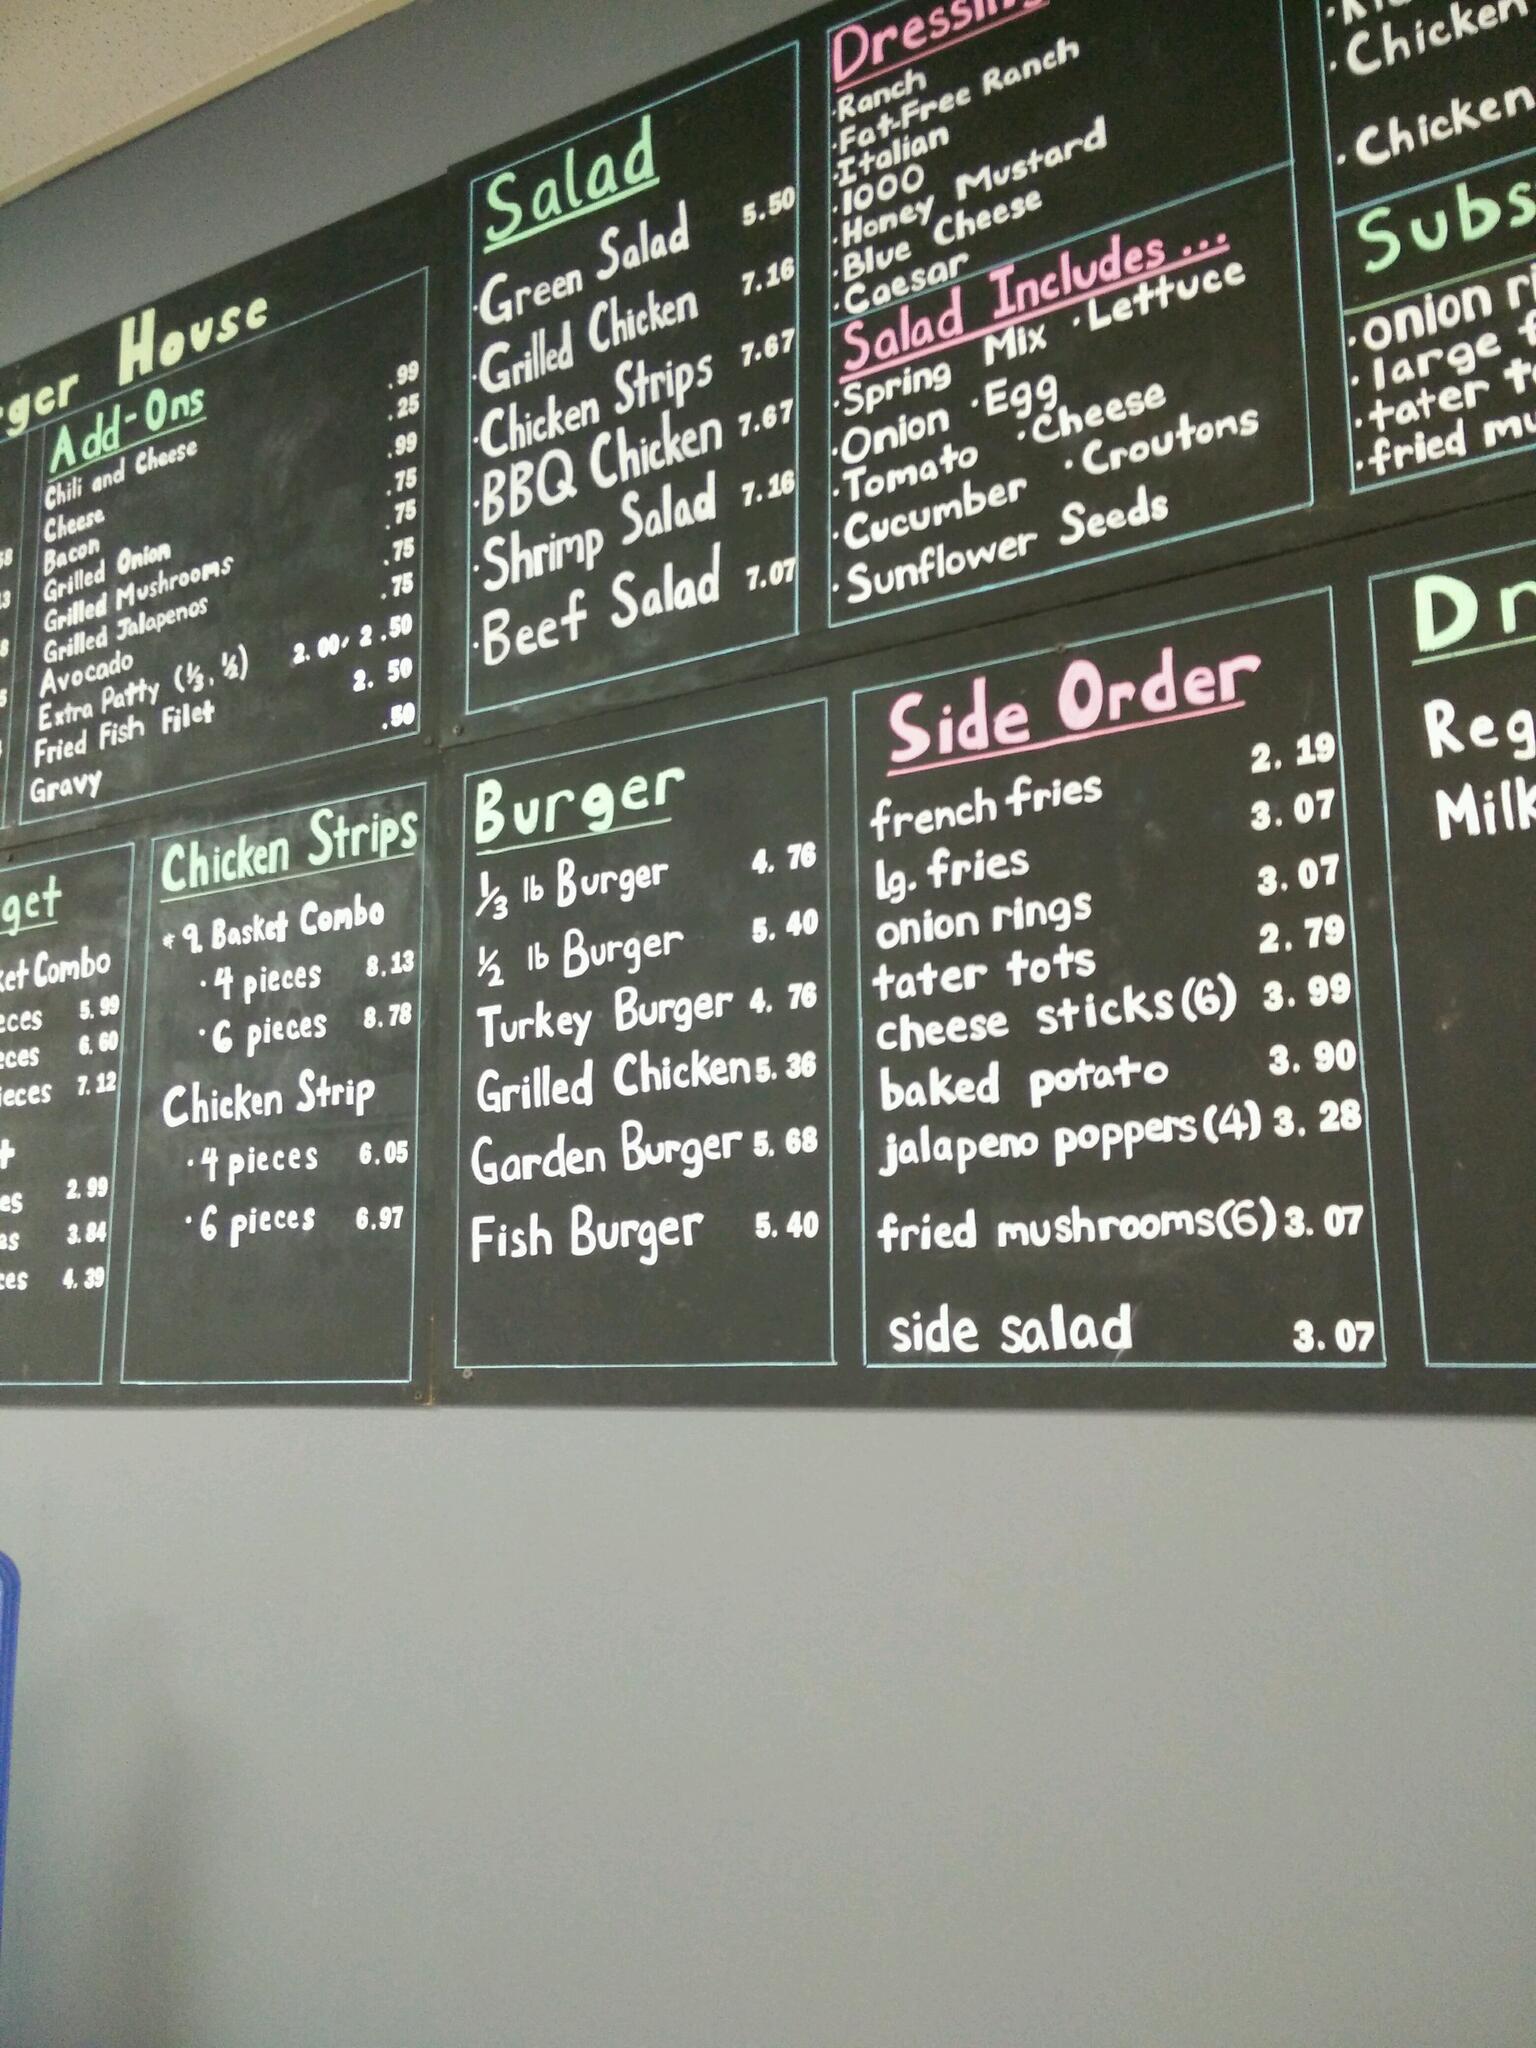 House
Add-Ons
Chili and Cheese .99
Cheese .25
Bacon .99
Grilled Onion .75
Grilled Mushrooms .75
Grilled Jalapenos .75
Avocado .75
Extra Patty (⅓, ½) 2.00, 2.50
Fried Fish Filet 2.50
Gravy .50
5.99
6.60
7.12
2.99
3.84
4.39
Chicken Strips
#9 Basket Combo
· 4 pieces 8.13
· 6 pieces 8.78
Chicken Strip
· 4 pieces 6.05
· 6 pieces 6.97
Salad
· Green Salad 5.50
· Grilled Chicken 7.16
· Chicken Strips 7.67
· BBQ Chicken 7.67
· Shrimp Salad 7.16
· Beef Salad 7.07
Dressing
· Ranch
· Fat-Free Ranch
· Italian
· 1000
· Honey Mustard
· Blue Cheese
· Caesar
Salad Includes...
· Spring Mix · Lettuce
· Onion · Egg
· Tomato · Cheese
· Cucumber · Croutons
· Sunflower Seeds
Burger
⅓ lb Burger 4.76
½ lb Burger 5.40
Turkey Burger 4.76
Grilled Chicken 5.36
Garden Burger 5.68
Fish Burger 5.40
Side Order
french fries 2.19
lg. fries 3.07
onion rings 3.07
tater tots 2.79
cheese sticks (6) 3.99
baked potato 3.90
jalapeno poppers (4) 3.28
fried mushrooms (6) 3.07
side salad 3.07
· Chicken
· Chicken
Subs
· onion
· large
· tater
· fried
Milk